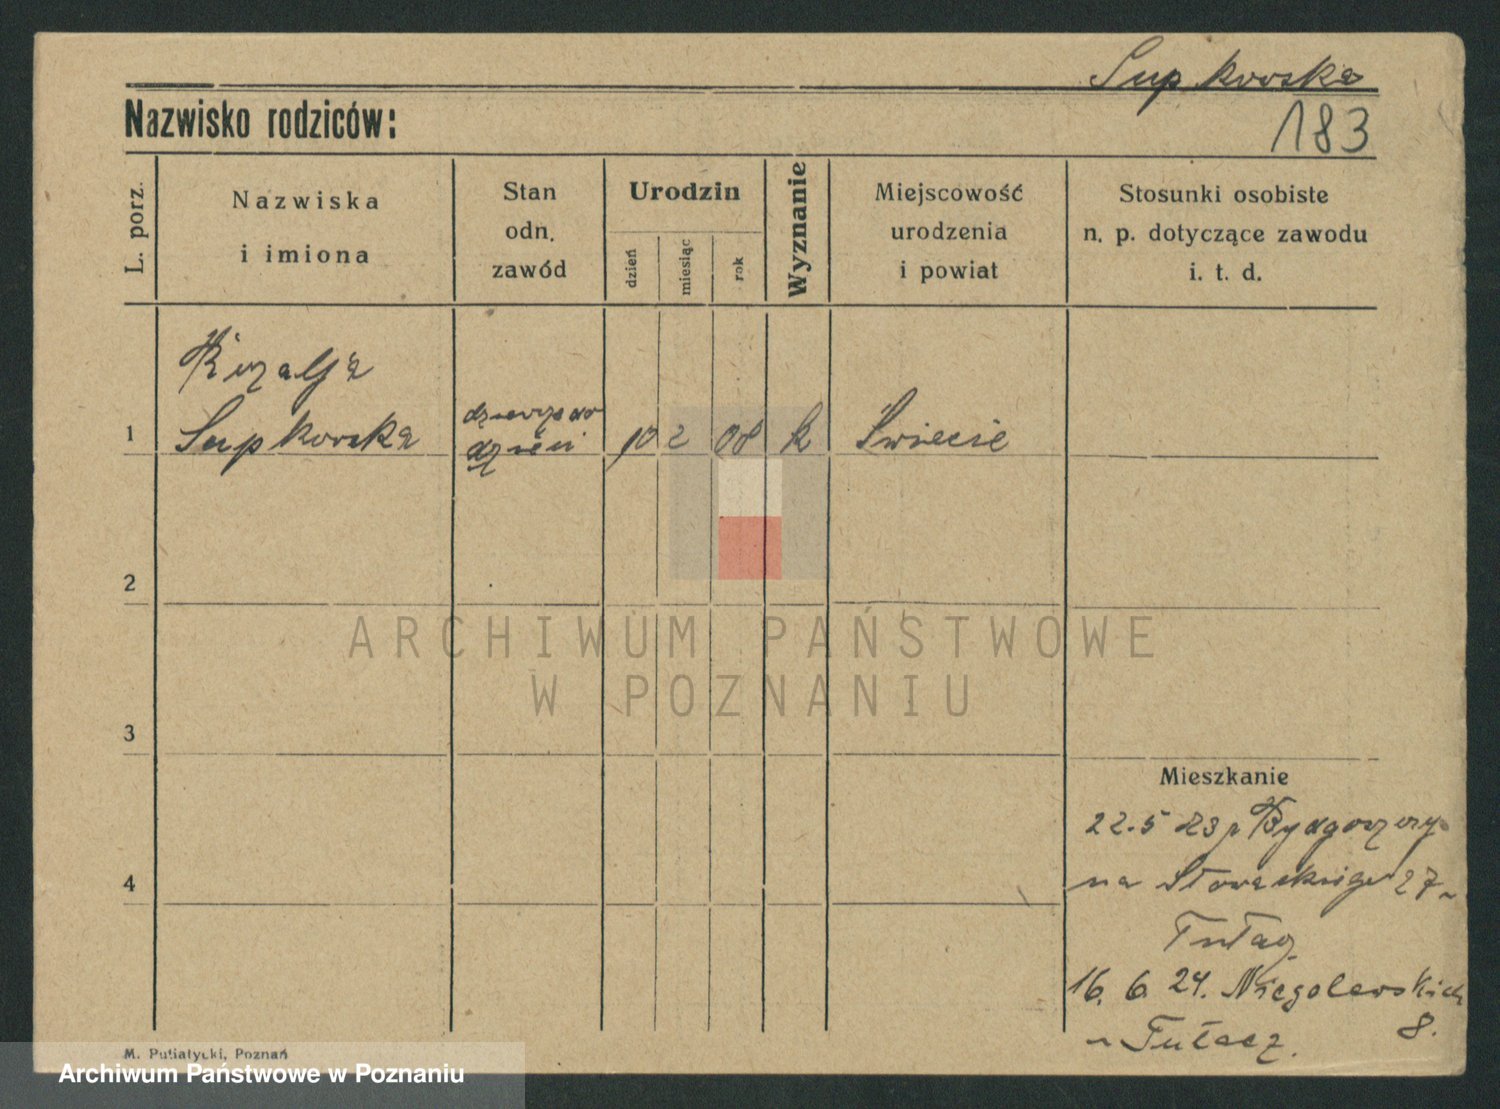 Supkowska
Nazwisko rodziców:
183
L. porz.
Nazwiska
i imiona
Stan
odn.
zawód
Urodzin
dzień
miesiąc
rok
Wyznanie
Miejscowość
urodzenia
i powiat
Stosunki osobiste
n. p. dotyczące zawodu
i. t. d.
Supkowska
dzieci
1
10 2 08 k Świecie
2
ARCHIWUM PAŃSTWOWE
W POZNANIU
3
Mieszkanie
22.5 23 z Bydgoszczy
na Słowackiego 27
4
Tułacz
16. 6. 24. Niegolewskich
8.
u Tułacz.
M. Putiatycki, Poznań
Archiwum Państwowe w Poznaniu